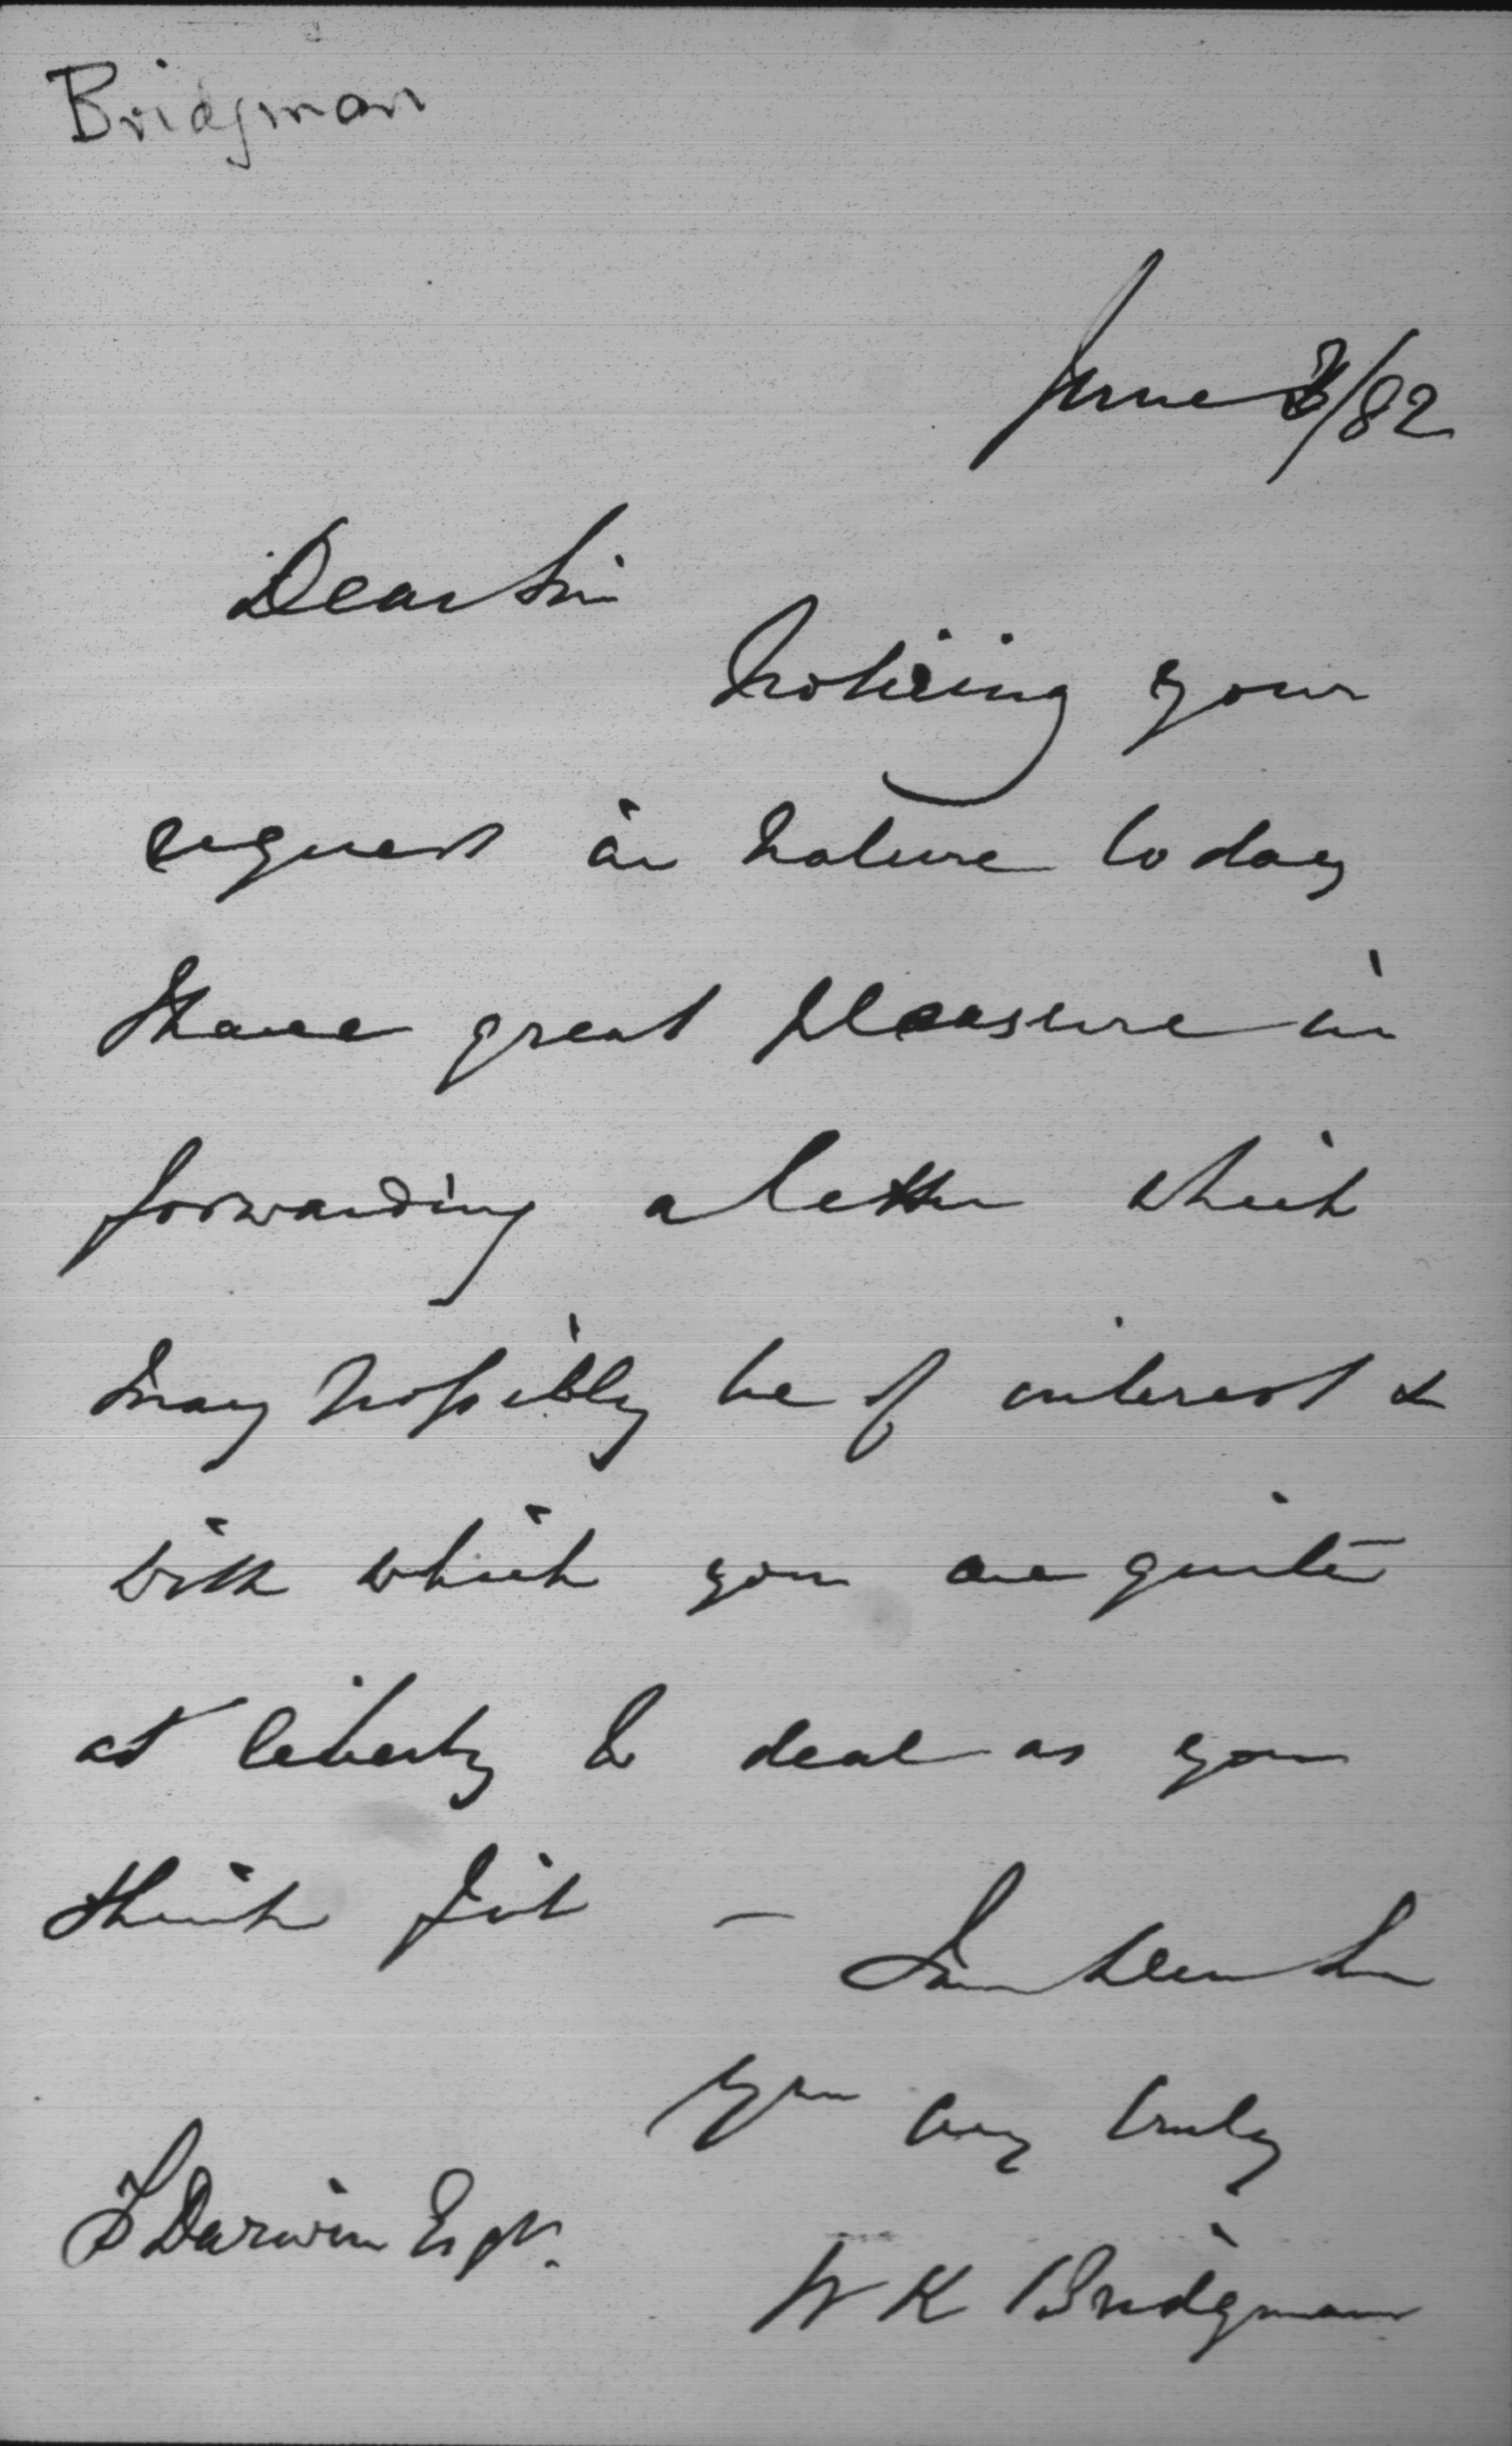 Bridgman
June 8/82
Dear Sir
Noticing your
request in Nature today
I have great pleasure in
forwarding a letter which
may possibly be of interest &
with which you are quite
at liberty to deal as you
think fit — I am dear Sir
Yours very truly
F Darwin Esqr.
W K Bridgman